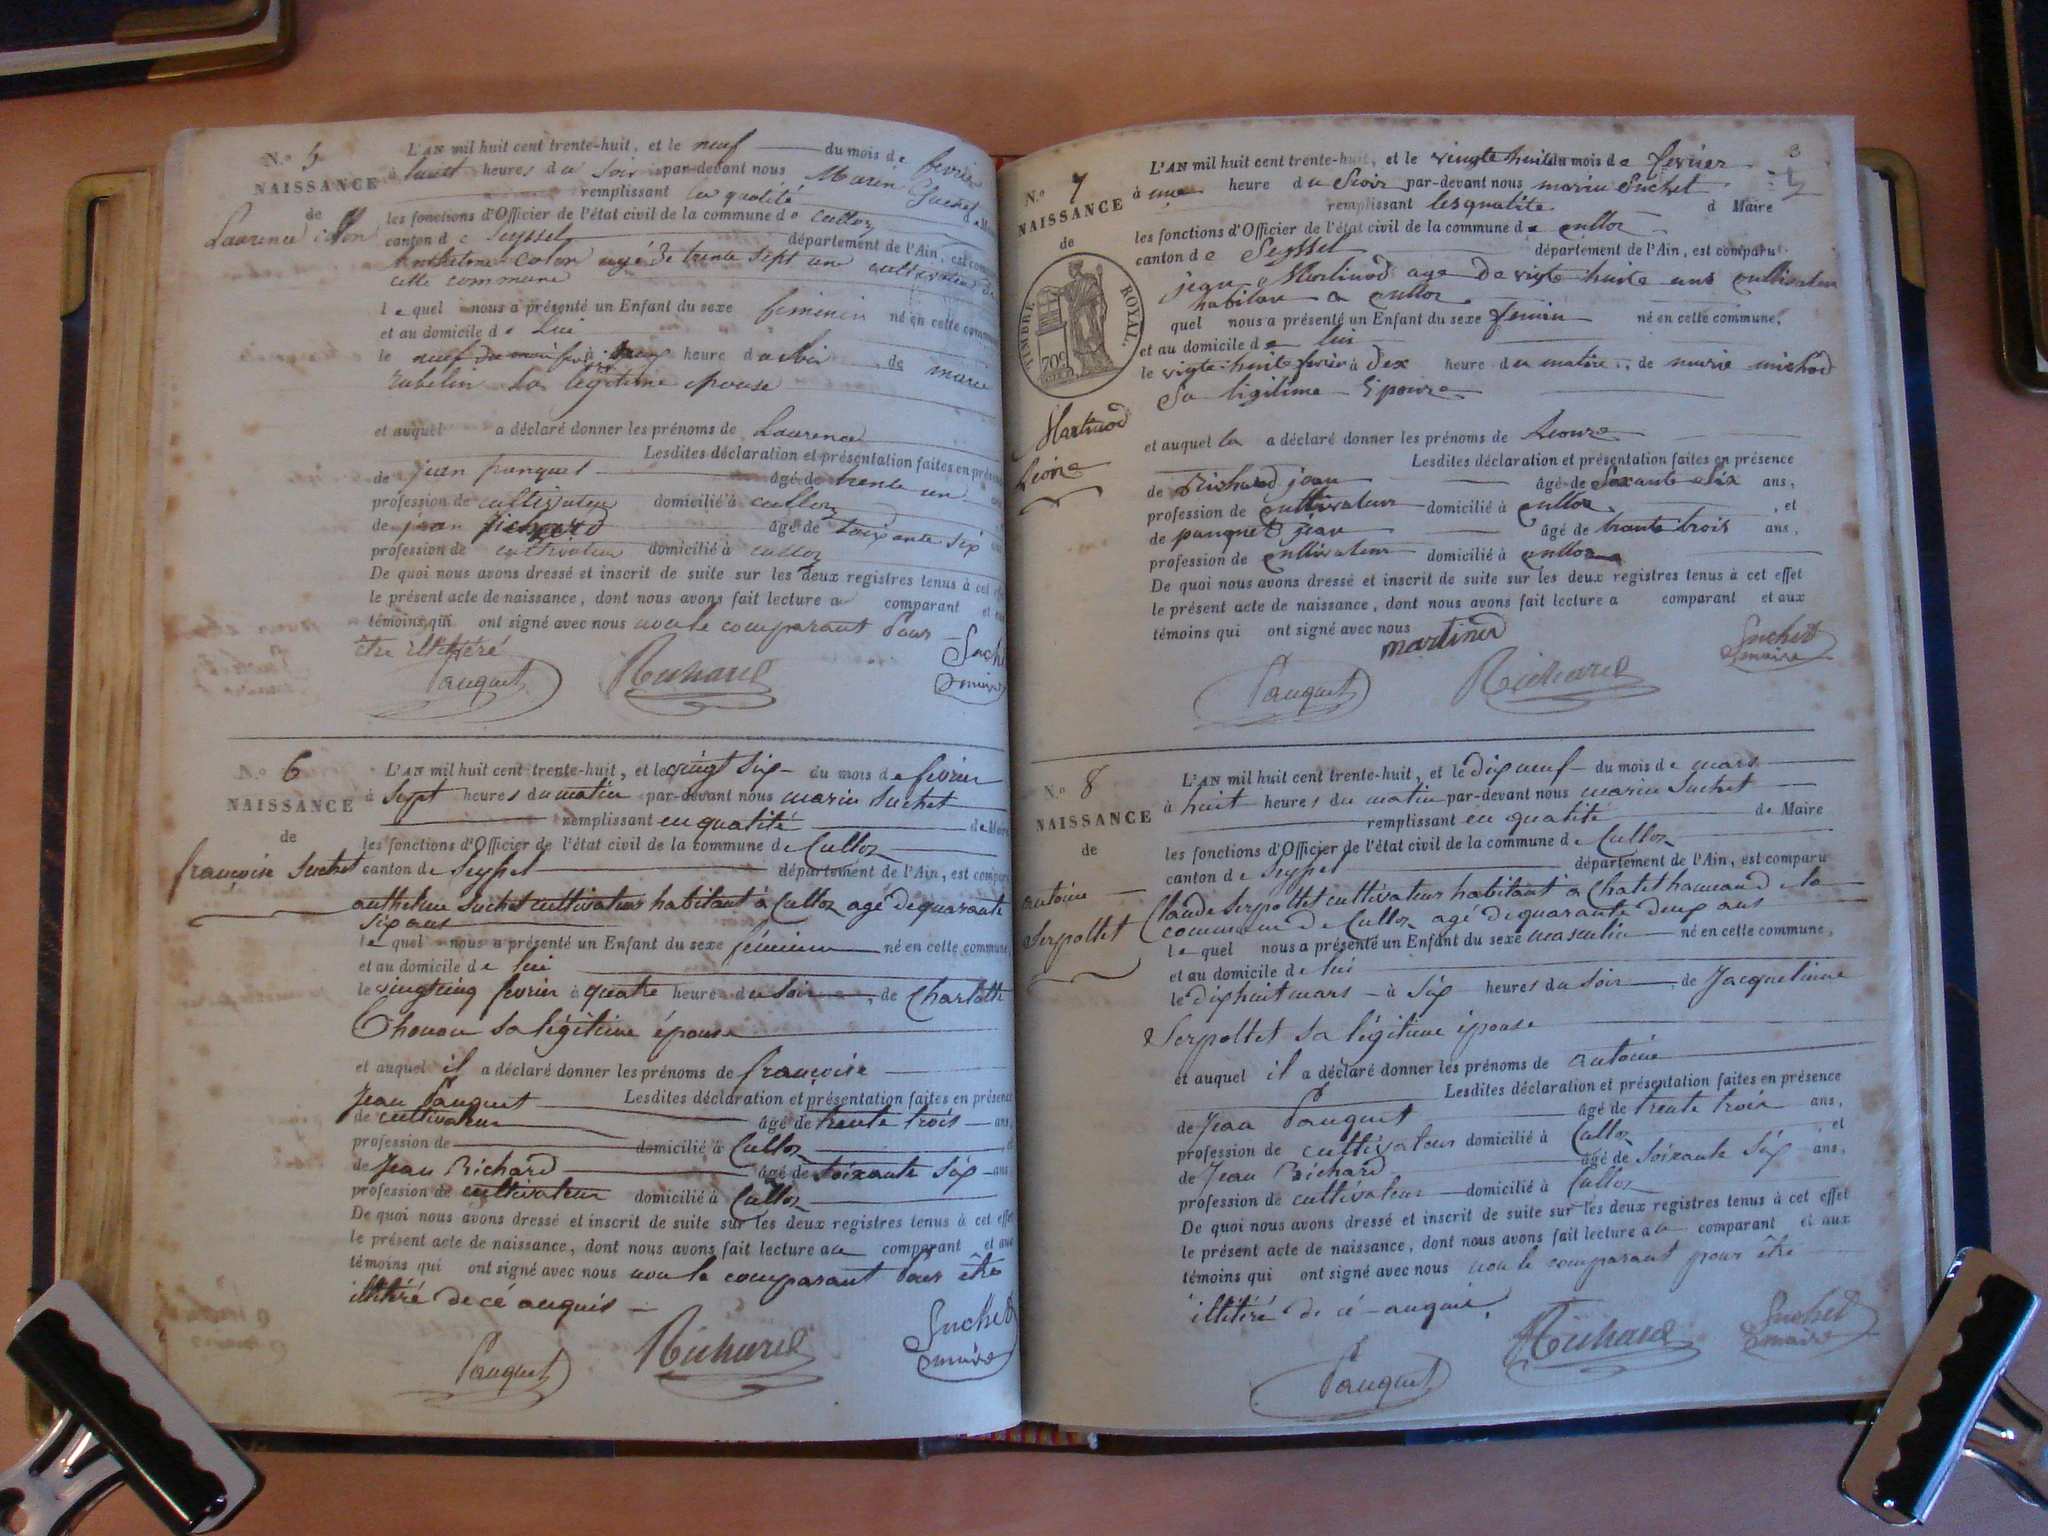 N.o 5
NAISSANCE
de
Laurence Colon
L'AN mil huit cent trente-huit, et le neuf du mois de fevrier
à heures du soir par-devant nous Marin Suchet
remplissant la qualité de Maire
les fonctions d'Officier de l'état civil de la commune de culloz
canton de Seyssel département de l'Ain, est comparu
Anthelme Colon agé de trente sept ans cultivateur de
cette commune
le quel nous a présenté un Enfant du sexe feminin né en cette commune
et au domicile de Lui
le neuf du mois à heure du soir, de marie
rubelin sa légitime epouse
et auquel a déclaré donner les prénoms de Laurence
Lesdites déclaration et présentation faites en présence
de jean panquet âgé de trente un
profession de cultivateur domicilié à culloz
de jean richard âgé de soixante six
profession de cultivateur domicilié à culloz
De quoi nous avons dressé et inscrit de suite sur les deux registres tenus à cet effet
le présent acte de naissance, dont nous avons fait lecture au comparant et aux
témoins qui ont signé avec nous non le comparant Pour
être illétéré
Panquet Richard Suchet
maire
N.o 6
NAISSANCE
de
françoise Suchet
L'AN mil huit cent trente-huit, et le vingt six du mois de fevrier
à Sept heures du matin par-devant nous marin Suchet
remplissant en qualité de Maire
les fonctions d'Officier de l'état civil de la commune de Culloz
canton de Seyssel département de l'Ain, est comparu
anthelme Suchet cultivateur habitant à Culloz agé de quarante
six ans
le quel nous a présenté un Enfant du sexe féminin né en cette commune,
et au domicile de lui
le vingt cinq fevrier à quatre heure du soir, de Charlotte
sa légitime épouse
et auquel il a déclaré donner les prénoms de françoise
Lesdites déclaration et présentation faites en présence
Jean Panquet
de cultivateur âgé de trente trois ans,
profession de domicilié à Culloz, et
de Jean Richard âgé de soixante six ans
profession de cultivateur domicilié à Culloz
De quoi nous avons dressé et inscrit de suite sur les deux registres tenus à cet effet
le présent acte de naissance, dont nous avons fait lecture au comparant et aux
témoins qui ont signé avec nous non le comparant Pour être
illétéré de cé anquis
Panquet Richard Suchet
maire
3
N.o 7
NAISSANCE
de
TIMBRE ROYAL
70c
Martinod
Leone
L'AN mil huit cent trente-huit, et le vingte huit du mois de fevrier
à une heure du Soir par-devant nous marin Suchet
remplissant les qualite d Maire
les fonctions d'Officier de l'état civil de la commune de culloz
canton de Seyssel département de l'Ain, est comparu
jean Martinod age de vigte huite ans cultivateur
habitan a culloz
quel nous a présenté un Enfant du sexe femin né en cette commune,
et au domicile de lui
le vigte huite fevrier à dex heure du matin, de marie michod
Sa ligitime Epouze
et auquel la a déclaré donner les prénoms de
Lesdites déclaration et présentation faites en présence
de Richard jean âgé de Soxante Six ans,
profession de cultivateur domicilié à culloz, et
de panquet jean âgé de trante trois ans,
profession de cultivateur domicilié à culloz
De quoi nous avons dressé et inscrit de suite sur les deux registres tenus à cet effet
le présent acte de naissance, dont nous avons fait lecture a comparant et aux
témoins qui ont signé avec nous
martinod
Panquet Richard Suchet
maire
N.o 8
NAISSANCE
de
antoine
Serpollet
L'AN mil huit cent trente-huit, et le dix neuf du mois de mars
à huit heures du matin par-devant nous marin Suchet
remplissant en qualité de Maire
les fonctions d'Officier de l'état civil de la commune de Culloz
canton de Seyssel département de l'Ain, est comparu
Claude Serpollet cultivateur habitant à Chatel hameau de la
commune de Culloz agé de quarante deux ans
le quel nous a présenté un Enfant du sexe masculin né en cette commune,
et au domicile de lui
le dix huit mars à Six heures du soir, de Jacqueline
Serpollet sa légitime épouse
et auquel il a déclaré donner les prénoms de antoine
Lesdites déclaration et présentation faites en présence
de Jean Panquet âgé de trente trois ans,
profession de cultivateur domicilié à Culloz, et
de Jean Richard âgé de soixante Six ans,
profession de cultivateur domicilié à Culloz
De quoi nous avons dressé et inscrit de suite sur les deux registres tenus à cet effet
le présent acte de naissance, dont nous avons fait lecture au comparant et aux
témoins qui ont signé avec nous non le comparant pour être
illétéré de cé anquis
Panquet Richard Suchet
maire